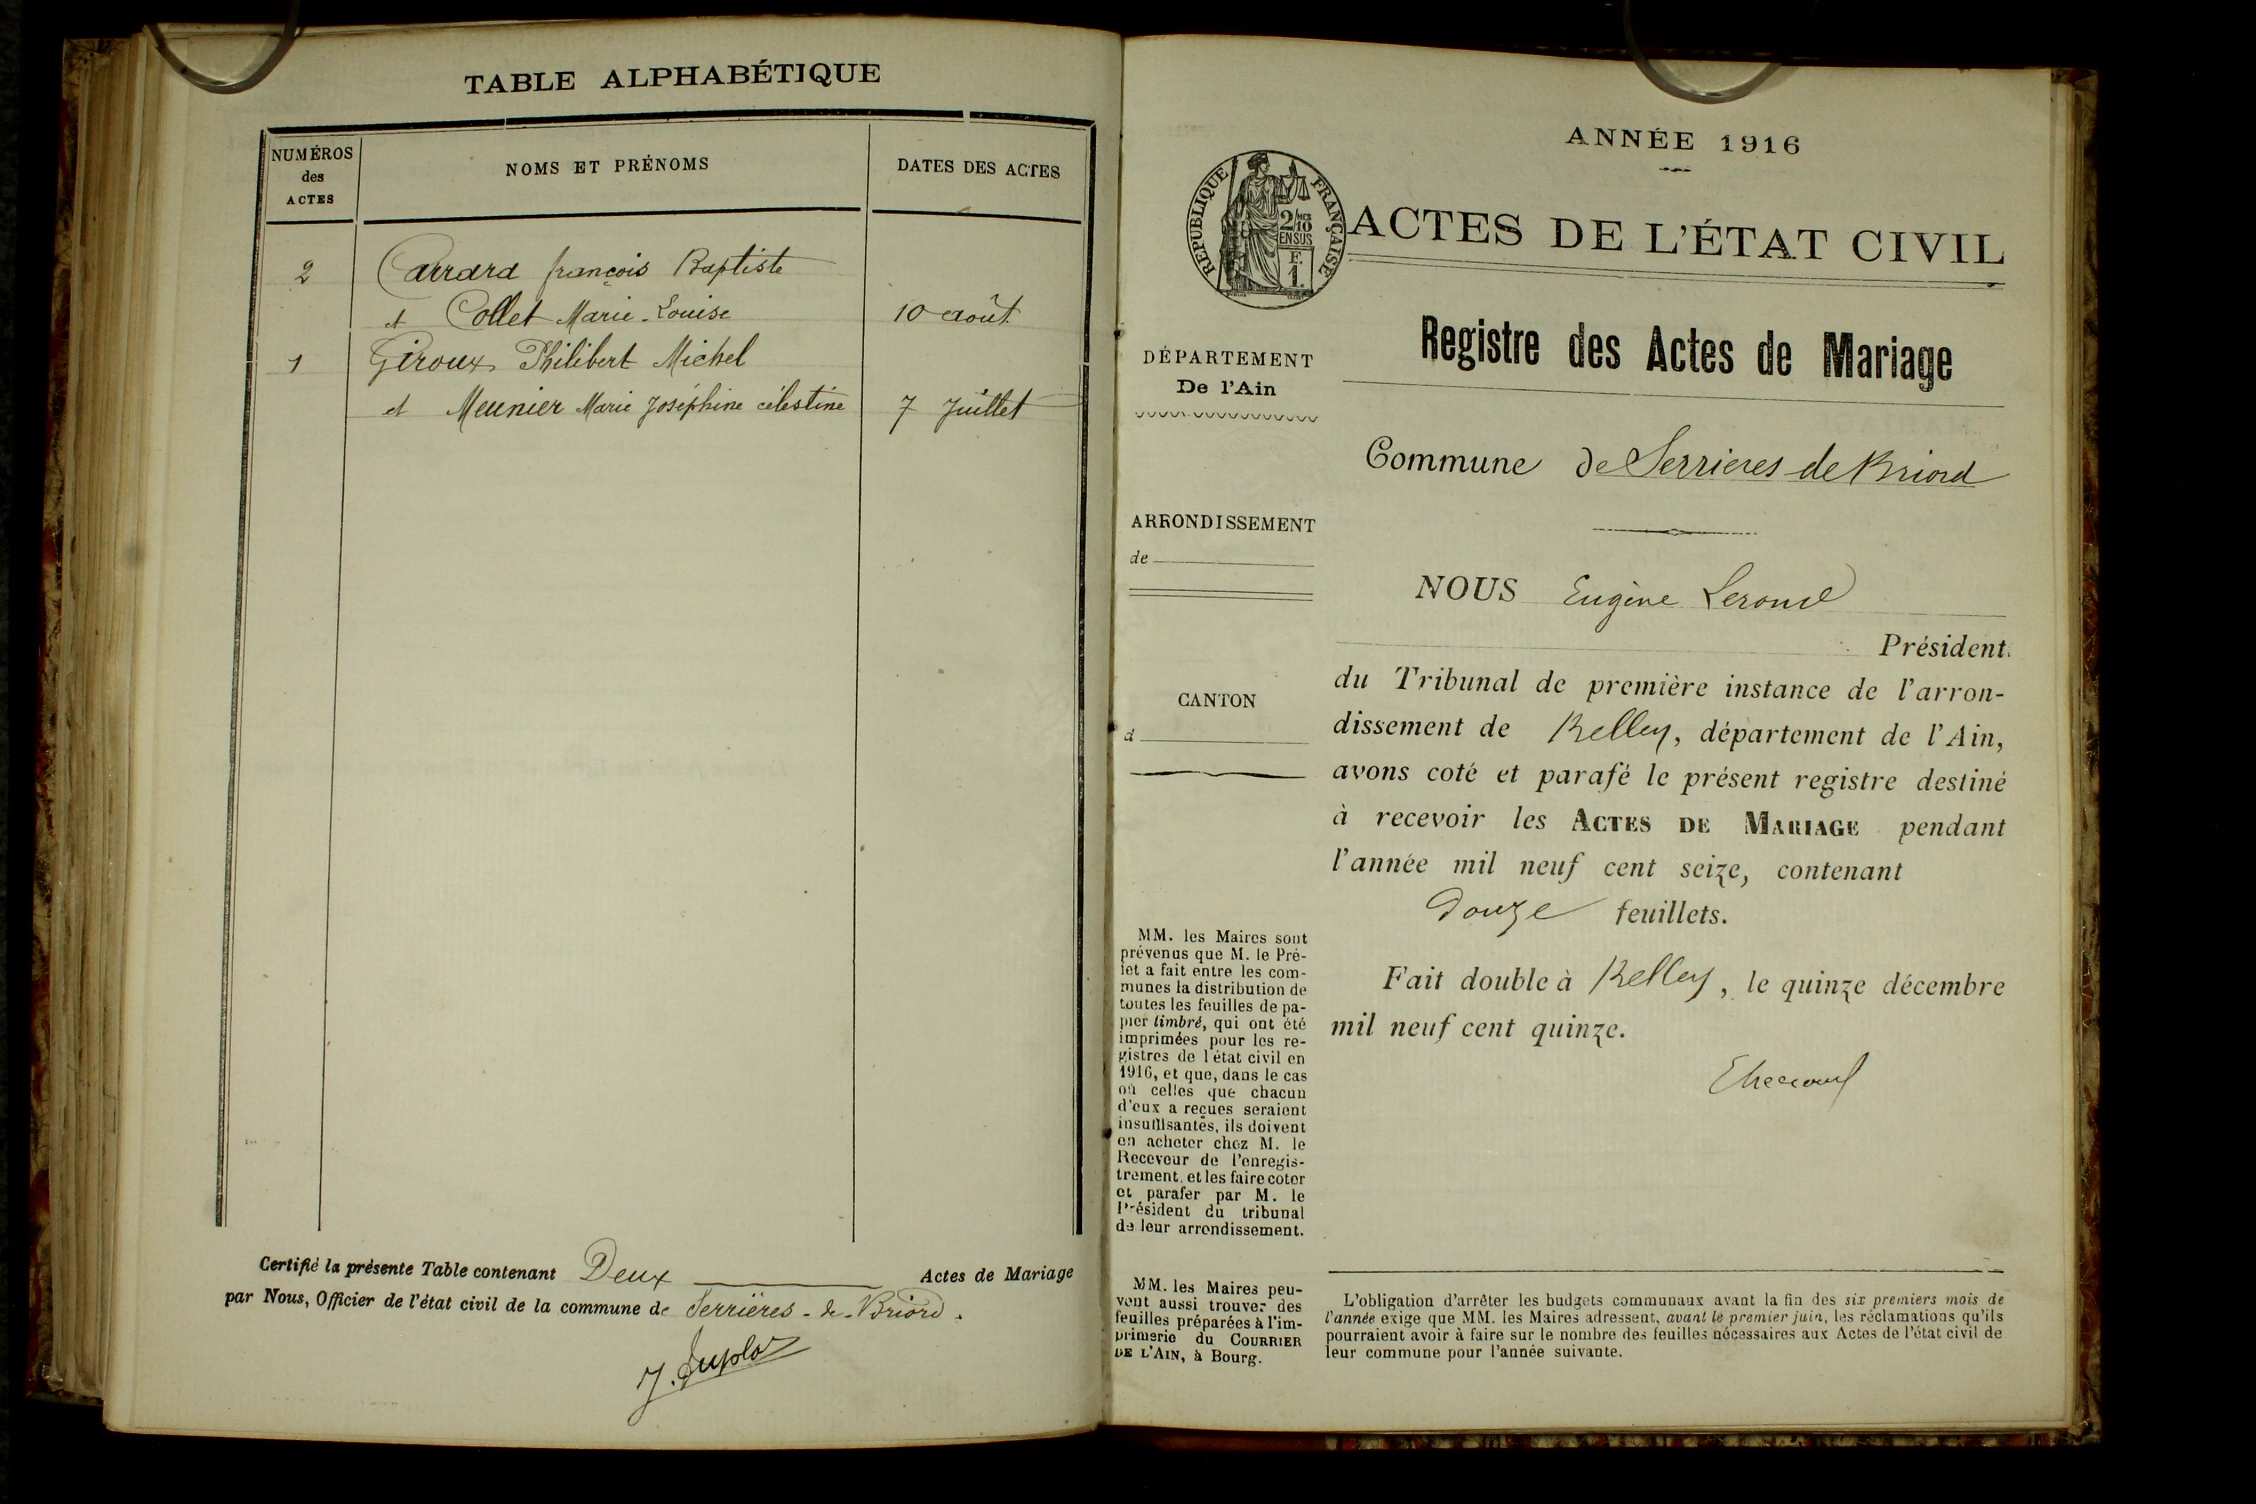 TABLE ALPHABÉTIQUE
NUMÉROS
des
ACTES
NOMS ET PRÉNOMS
DATES DES ACTES
2 Carrard françois Baptiste
et Collet Marie-Louise 10 août
1 Giroux Philibert Michel
et Meunier Marie Joséphine célestine 7 Juillet
Certifié la présente Table contenant Deux Actes de Mariage
par Nous, Officier de l'état civil de la commune de Serrières-de-Briord.
ANNÉE 1916
RÉPUBLIQUE FRANÇAISE
2/10
EN SUS
F.
1
ACTES DE L'ÉTAT CIVIL
Registre des Actes de Mariage
DÉPARTEMENT
De l'Ain
Commune de Serrieres de Briord
ARRONDISSEMENT
de
CANTON
d
NOUS Eugène
Président
du Tribunal de première instance de l'arron-
dissement de Belley, département de l'Ain,
avons coté et parafé le présent registre destiné
à recevoir les ACTES DE MARIAGE pendant
l'année mil neuf cent seize, contenant
Douze feuillets.
Fait double à Belley, le quinze décembre
mil neuf cent quinze.
MM. les Maires sont
prévenus que M. le Pré-
fet a fait entre les com-
munes la distribution de
toutes les feuilles de pa-
pier timbré, qui ont été
imprimées pour les re-
gistres de l'état civil en
1916, et que, dans le cas
où celles que chacun
d'eux a reçues seraient
insuffisantes, ils doivent
en acheter chez M. le
Receveur de l'enregis-
trement, et les faire coter
et parafer par M. le
Président du tribunal
de leur arrondissement.
MM. les Maires peu-
vent aussi trouver des
feuilles préparées à l'im-
primerie du COURRIER
DE L'AIN, à Bourg.
L'obligation d'arrêter les budgets communaux avant la fin des six premiers mois de
l'année exige que MM. les Maires adressent, avant le premier juin, les réclamations qu'ils
pourraient avoir à faire sur le nombre des feuilles nécessaires aux Actes de l'état civil de
leur commune pour l'année suivante.